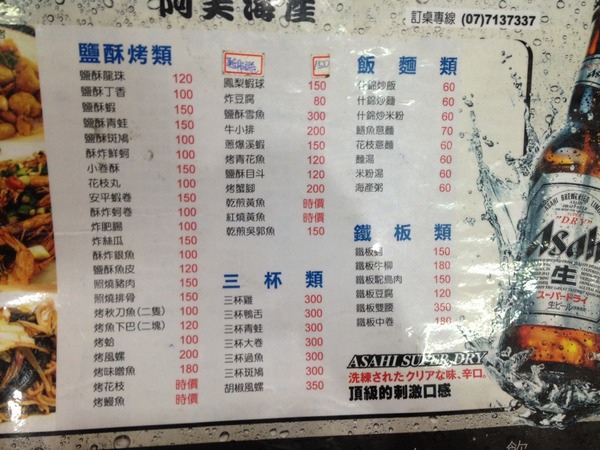 阿美海產
訂桌專線 (07)7137337
鹽酥烤類
鹽酥龍珠 120
鹽酥丁香 100
鹽酥蝦 150
鹽酥青蛙 150
鹽酥斑鳩 100
酥炸鮮蚵 100
小卷酥 150
花枝丸 100
安平蝦卷 150
酥炸蚵卷 100
炸肥腸 150
炸絲瓜 150
酥炸銀魚 100
鹽酥魚皮 120
照燒豬肉 150
照燒排骨 150
烤秋刀魚(二隻) 100
烤魚下巴(二塊) 120
烤蛤 100
烤風螺 200
烤味噌魚 180
烤花枝 時價
烤鰻魚 時價
100
鳳梨蝦球 150
炸豆腐 80
鹽酥雪魚 300
牛小排 200
蔥爆溪蝦 150
烤青花魚 120
鹽酥目斗 120
烤蟹腳 200
乾煎黃魚 時價
紅燒黃魚 時價
乾煎吳郭魚 150
三杯類
三杯雞 300
三杯鴨舌 300
三杯青蛙 300
三杯大卷 300
三杯過魚 300
三杯斑鳩 300
胡椒風螺 350
飯麵類
什錦炒飯 60
什錦炒麵 60
什錦炒米粉 60
鱔魚意麵 70
花枝意麵 60
麵湯 60
米粉湯 60
海產粥 60
鐵板類
鐵板蚵 150
鐵板牛柳 180
鐵板駝鳥肉 150
鐵板豆腐 120
鐵板雙腰 350
鐵板中卷 180
ASAHI SUPER DRY
洗練されたクリアな味、辛口。
頂級的刺激口感
ASAHI BREWERIES
"DRY"
Asahi
生
スーパードライ
生ビール
飲